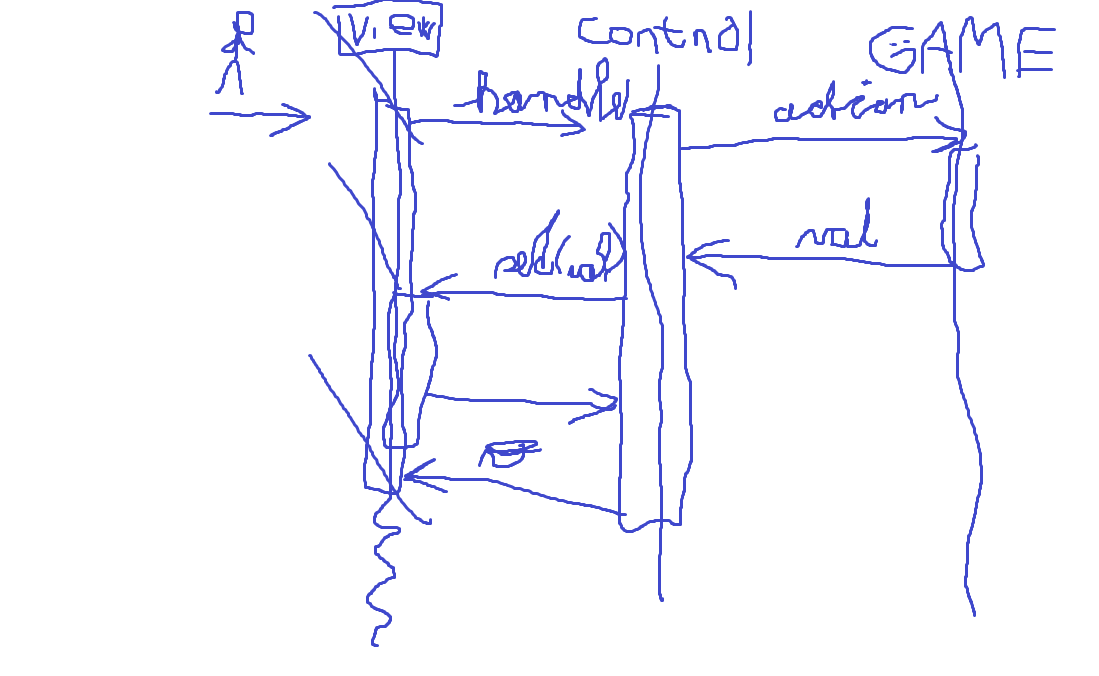 View
Control
GAME
handle
action
val
set(val)